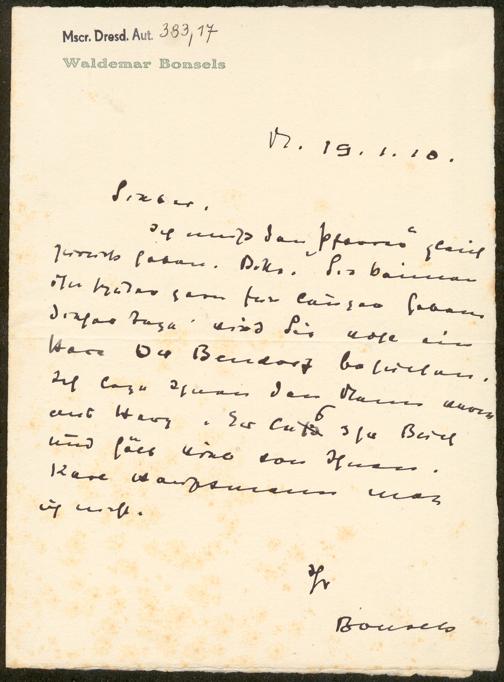 Mscr. Dresd. Aut. 383,17
Waldemar Bonsels
19.1.10.
Lieber,
Ich muß den „Pfarrer" gleich
zurück haben. Bitte. Sie können
ihn später gern für länger haben.
Dieser Tage wird Sie ein
Herr Bendorf besuchen.
Ich lege Ihnen den Mann warm
ans Herz. Er liebt Ihr Buch
und hält viel von Ihnen.
Karl Hauptmann mag
ich nicht.
Ihr
Bonsels